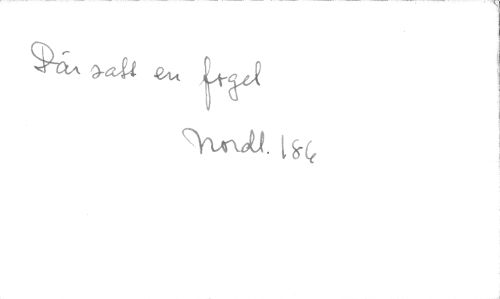 Där satt en fogel
Nordl. 186